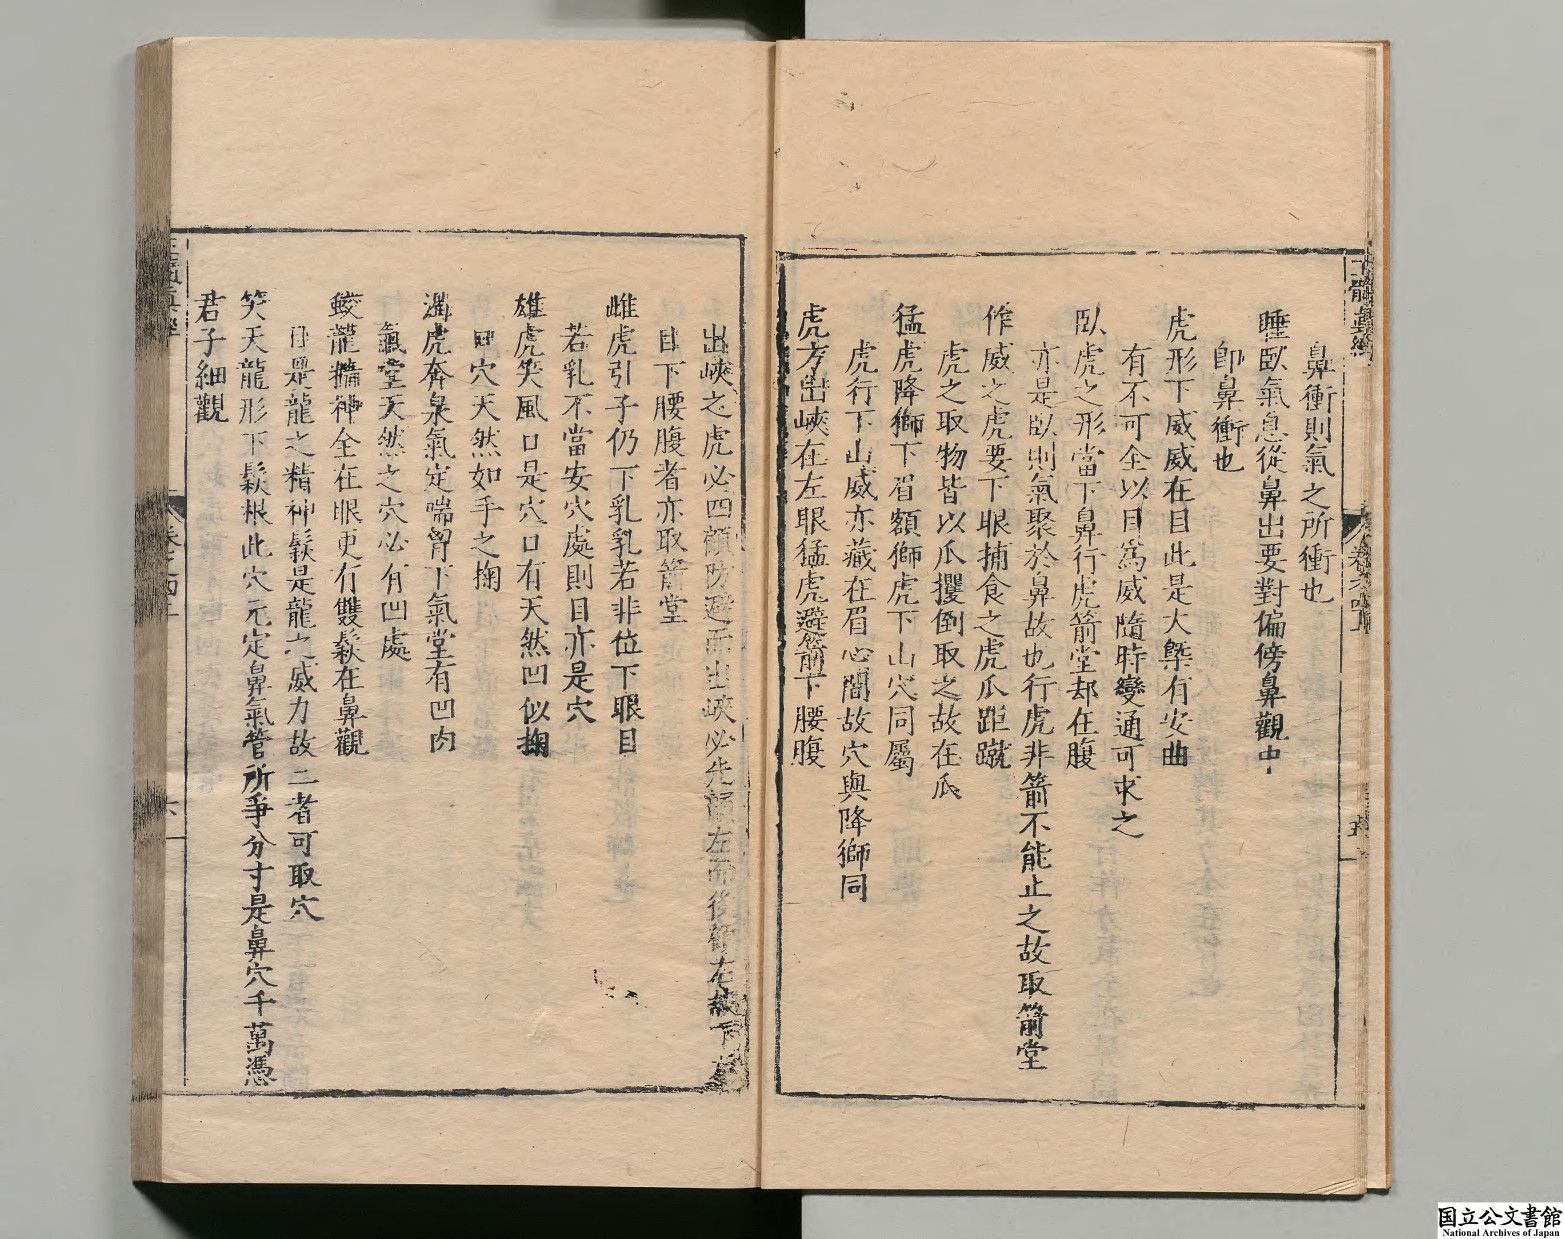 鼻衝則氣之所衝也
睡臥氣息從鼻出要對偏傍鼻觀中
卽鼻衝也
虎形下威威在目此是大槩有安曲
有不可全以目為威隨時變通可求之
臥虎之形當下鼻行虎箭堂却在腹
亦是臥則氣聚於鼻故也行虎非箭不能止之故取箭堂
作威之虎要下眼捕食之虎爪距蹴
虎之取物皆以爪攫倒取之故在爪
猛虎降獅下眉額獅虎下山穴同屬
虎行下山威亦藏在眉心間故穴與降獅同
虎方出峽在左眼猛虎避箭下腰腹
出峽之虎必四顧防避而出峽必先顧左而後右故下
目下腰腹者亦取箭堂
雌虎引子仍下乳乳若非位下眼目
若乳不當安穴處則目亦是穴
雄虎笑風口是穴口有天然凹似掬
凹穴天然如手之掬
渴虎奔泉氣定喘胷下氣堂有凹肉
氣堂天然之穴必有凹處
鮫龍精神全在眼更有雙鬏在鼻觀
目是龍之精神鬏是龍之威力故二者可取穴
笑天龍形下鬏根此穴元定鼻氣管所爭分寸是鼻穴千萬憑
君子細觀
国立公文書館
National Archives of Japan